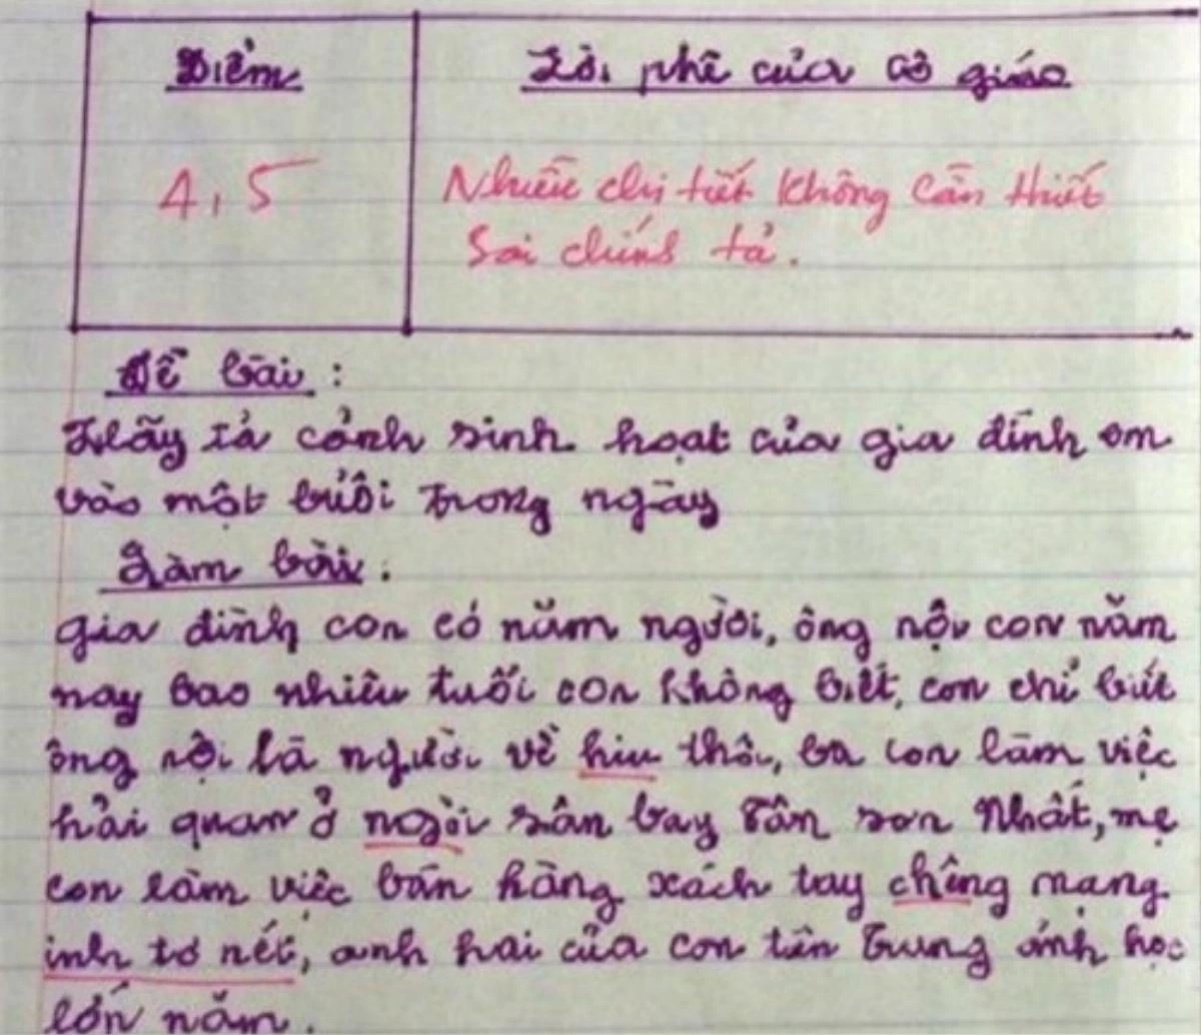 Điểm
Lời phê của cô giáo
4,5
Nhiều chi tiết không cần thiết
Sai chính tả.
Đề bài:
Hãy tả cảnh sinh hoạt của gia đình em
vào một buổi trong ngày
Làm bài.
gia đình con có năm người, ông nội con năm
nay bao nhiêu tuổi con không biết, con chỉ biết
ông nội là người về hiu thôi, ba con làm việc
hải quan ở ngòi sân bay Tân sơn Nhất, mẹ
con làm việc bán hàng xách tay chêng mạng
inh tơ nét, anh hai của con tên Trung ảnh học
lớn năm.